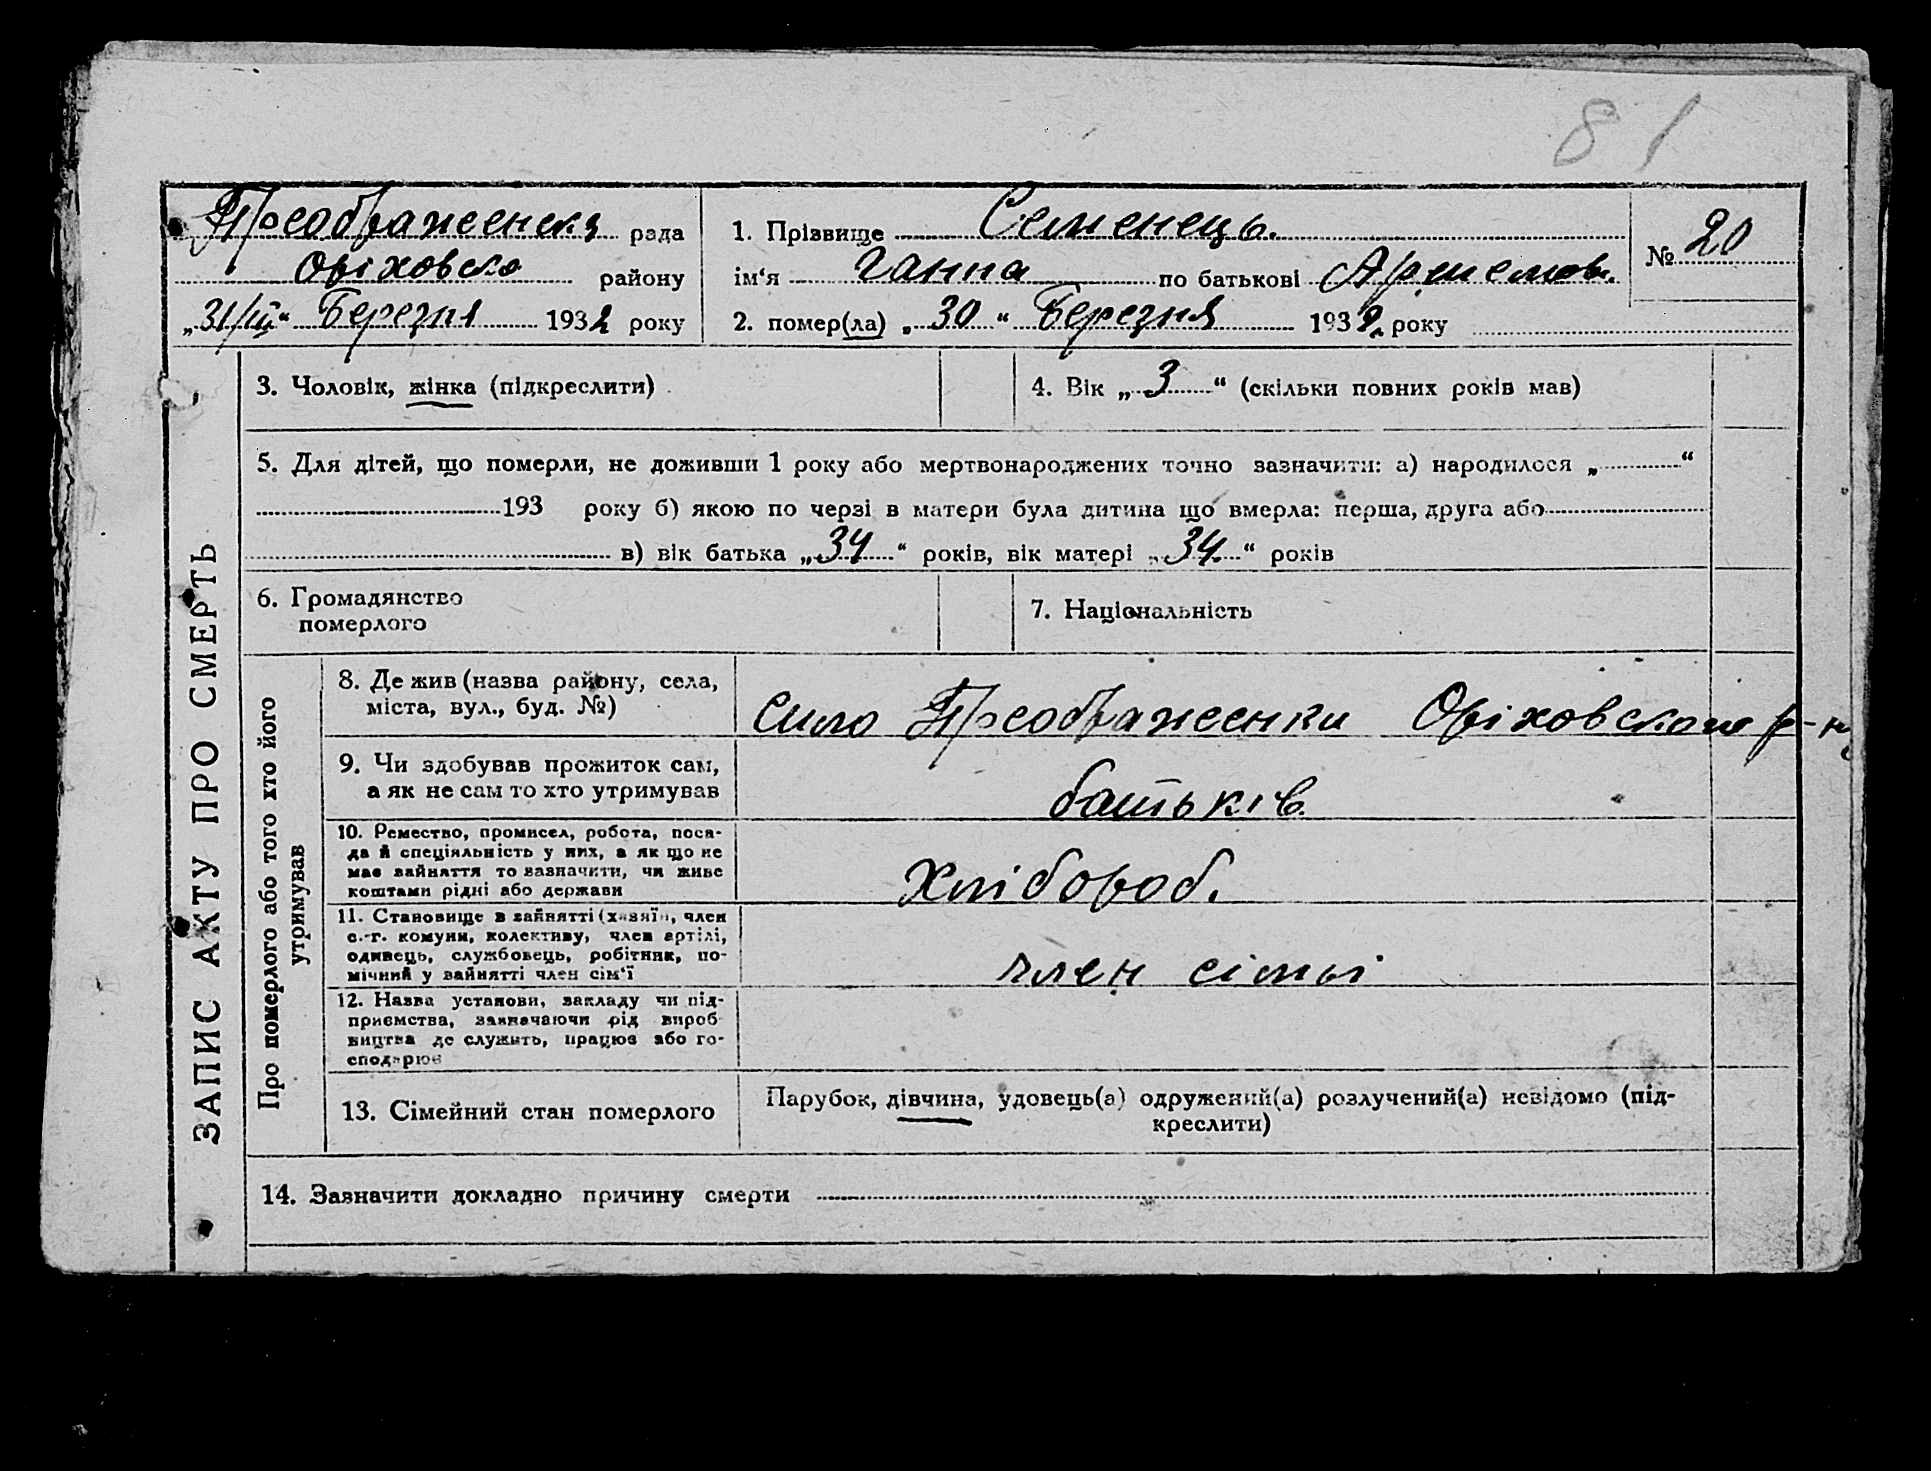 81
Преображенська рада
Оріховсько району
„31/III“ Березня 1932 року
1. Прізвище Семенець.
ім‘я Ганна по батькові Артемов.
№ 20
2. помер(ла) „30“ Березня 1932 року
3. Чоловік, жінка (підкреслити)
4. Вік „3“ (скільки повних років мав)
5. Для дітей, що померли, не доживши 1 року або мертвонароджених точно зазначити: а) народилося „ “
193 року б) якою по черзі в матери була дитина що вмерла: перша, друга або
в) вік батька „34“ років, вік матері „34“ років
6. Громадянство
померлого
7. Національність
ЗАПИС АКТУ ПРО СМЕРТЬ
Про померлого або того хто його
утримував
8. Де жив (назва району, села,
міста, вул., буд. №)
Село Преображенки Оріховського р-ну
9. Чи здобував прожиток сам,
а як не сам то хто утримував
батьків.
10. Ремество, промисел, робота, поса-
да й спеціяльність у них, а як що не
має зайняття то зазначити, чи живе
коштами рідні або держави
Хлібороб.
11. Становище в зайнятті (хазяїн, член
с.-г. комуни, колективу, член артілі,
одинець, службовець, робітник, по-
мічний у зайнятті член сім‘ї
член сімьі
12. Назва установи, закладу чи під-
приємства, зазначаючи рід вироб-
ництва де служить, працює або го-
сподарює
13. Сімейний стан померлого
Парубок, дівчина, удовець(а) одружений(а) розлучений(а) невідомо (під-
креслити)
14. Зазначити докладно причину смерти